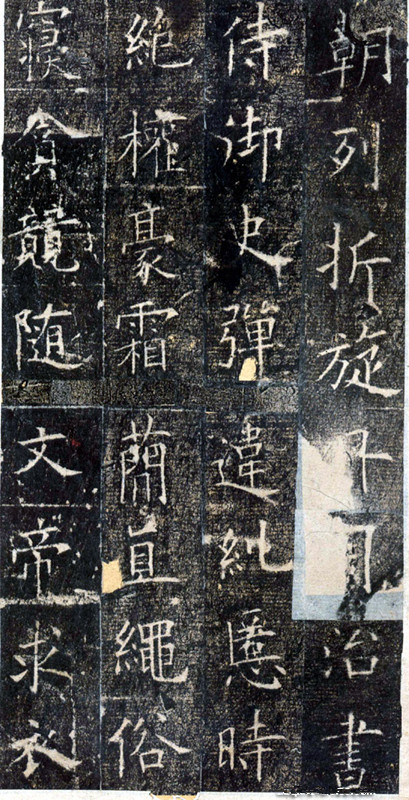 朝列折旋治書
侍御史彈違糺慝時
絶權豪霜蕑直繩俗
寢貪競随文帝求衣